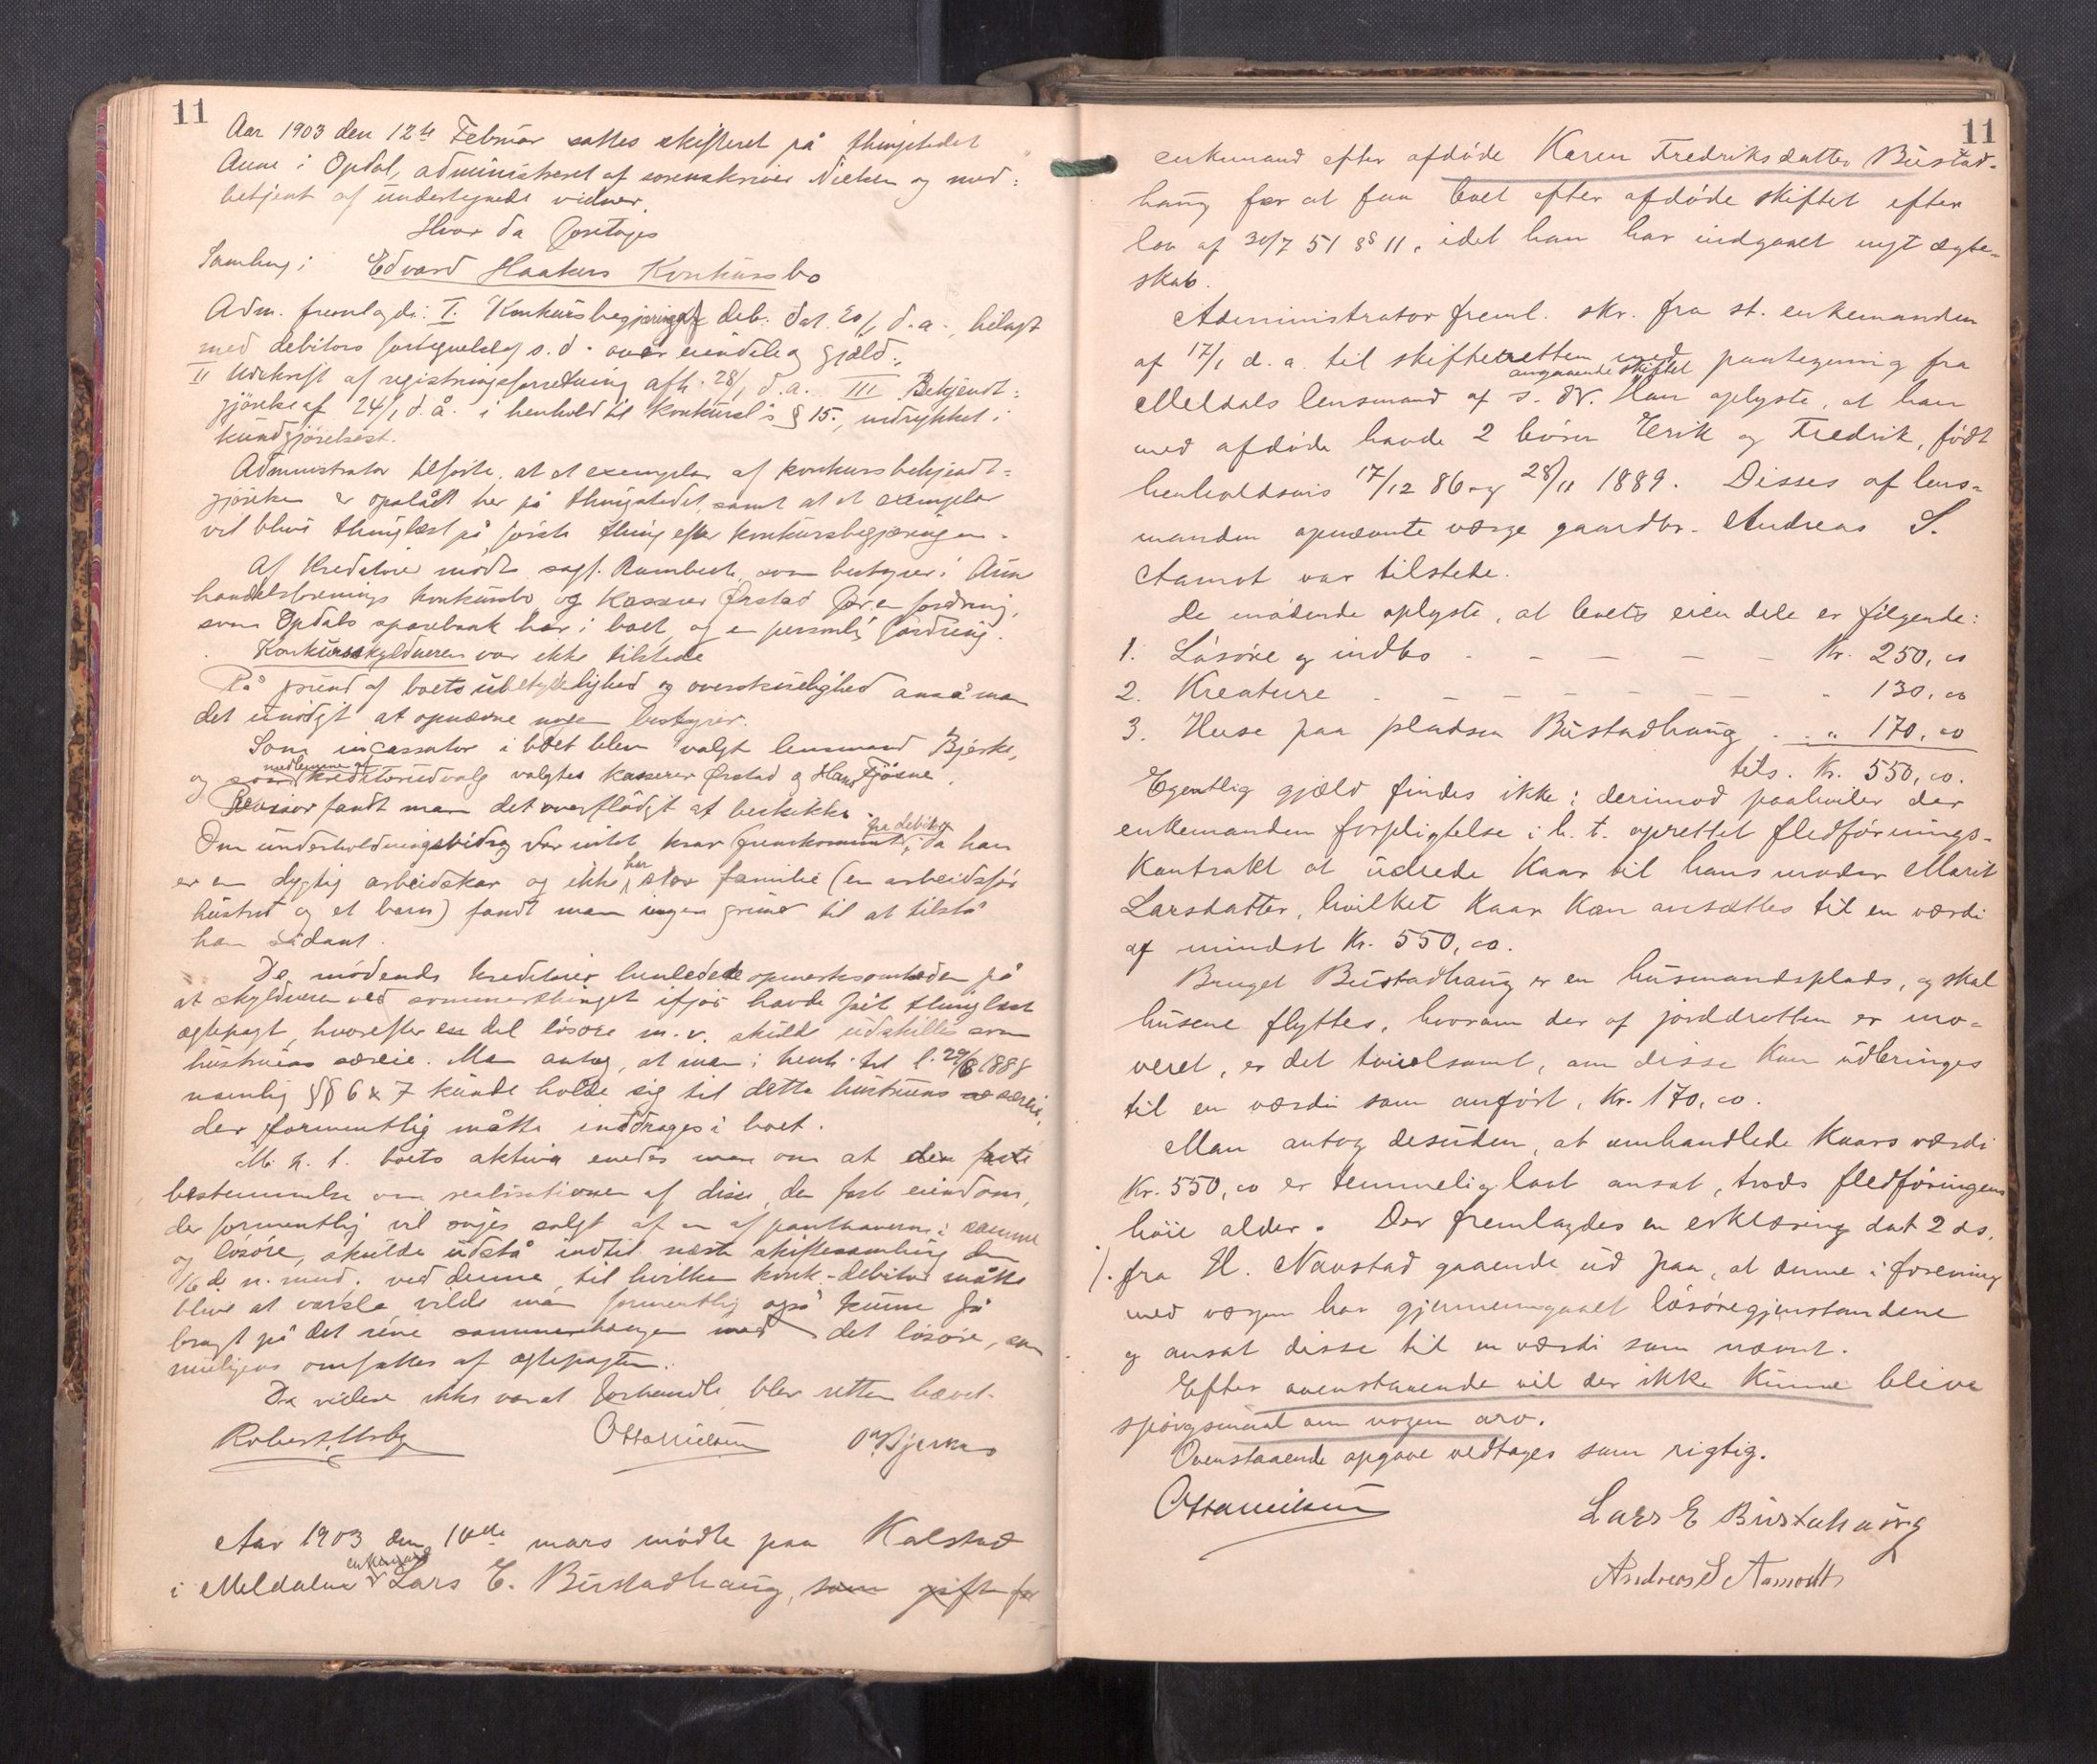 11
Aar 1903 den 12te Februar sattes skifteret på thingstedet
Aune i Opdal, administreret af sorenskriver Nielsen og med-
betjent af undertegnede vidner.
Hvor da foretages
Samling i Edvard Haakers Konkursbo
Adm. fremlagde: I. Konkursbegjæring af deb. dat. 20/1 d.a., bilagt
med debitors fortegnelse af s.d. over eiendele og gjæld.
II Udskrift af registreringsforretning afh. 28/1 d.a. III Bekjendt-
gjørelse af 24/1 d.å. i henhold til konkursl's § 15, indrykket i
kundgjørelsest.
Administrator tilførte, at et exemplar af konkursbekjendt-
gjørelsen er opslått her på thingstedet, samt at et exemplar
vil blive thinglæst på første thing efter konkursbegjæringen.
Af kreditorer mødte sagf. Rambech som bestyrer i Aune
handelsforenings konkursbo og kasserer Ørstad for en fordring,
som Opdals sparebank har i boet og en personlig fordring.
Konkursskyldneren var ikke tilstede
På grund af boets ubetydelighed og overskuelighed anså man
det unødigt at opnævne nogen bestyrer.
Som incassator i boet blev valgt lensmand Bjerke,
og som medlemmer af kreditorudvalg valgtes kasserer Ørstad og Hans Fjøsne.
Revisor fandt man det overflødigt at beskikke.
Om underholdningsbidrag var intet krav fremkommet fra debitor, da han
er en dygtig arbeidskar og ikke har stor familie (en arbeidsfør
hustru og et barn) fandt man ingen grund til at tilstå
ham sådant.
De mødende kreditorer henledede opmerksomheden på
at skyldneren ved sommerthinget ifjor havde fåt thinglæst
ægtepagt, hvorefter en del løsøre m.v. skulde udskilles som
hustruens særeie. Man antog, at man i henh. til l. 29/6 1888
navnlig §§ 6 & 7 kunde holde sig til dette hustruens særeie,
der formentlig måtte inddrages i boet.
M. h. t. boets aktiva enedes man om at den faste
bestemmelse om realisationen af disse, den fast eiendom,
der formentlig vil søges solgt af en af panthaverne i samme
og løsøre, skulde udstå indtil næste skiftesamling den
de n. mnd. ved denne, til hvilken konk.-debitor måtte
blive at varsle vilde man formentlig også kunne få
bragt på det rene sammenhængen med det løsøre, som
muligens omfattes af ægtepagten.
Da videre ikke var at forhandle blev retten hævet.
Otto Nielsen O. Bjerke
Aar 1903 den 10de mars mødte paa Kalstad
i Meldalen enkemand Lars E. Bustadhaug, som gift for
11
enkemand efter afdøde Karen Fredriksdatter Bustad-
haug for at faa boet efter afdøde skiftet efter
lov af 30/7 51 §§ 11, idet han har indgaaet nyt ægte-
skab.
Administrator freml. skr. fra st. enkemanden
af 17/1 d.a. til skifteretten angaaende skiftet med paategning fra
Meldals lensmand af s. D. Han oplyste, at han
med afdøde havde 2 børn Erik og Fredrik, født
henholdsvis 17/12 86 og 28/11 1889. Disses af lens-
manden opnævnte værge gaardbr. Andreas S.
Aamot var tilstede.
De mødende oplyste, at boets eiendele er følgende:
1. Løsøre og indbo - - - - - Kr. 250,00
2. Kreature - - - - - - - " 130,00
3. Huse paa pladsen Bustadhaug . . " 170,00
tils. Kr. 550,00.
Egentlig gjæld findes ikke; derimod paahviler der
enkemanden forpligtelse i h. t. oprettet fledførings-
kontrakt at udrede kaar til hans moder Marit
Larsdatter, hvilket kaar kan ansættes til en værdi
af mindst Kr. 550,00.
Bruget Bustadhaug er en husmandsplads, og skal
husene flyttes, hvorom der af jorddrotten er mo-
veret, er det tvivlsomt, om disse kan udbringes
til en værdi som anført, Kr. 170,00.
Man antog desuden, at omhandlede kaars værdi
Kr. 550,00 er temmelig lavt ansat, trods fledføringens
høie alder. Der fremlagdes en erklæring dat 2 ds.
fra H. Naustad gaaende ud paa, at denne i forening
med værgen har gjennemgaaet løsøregjenstandene
og ansat disse til en værdi som nævnt.
Efter ovenstaaende vil der ikke kunne blive
spørgsmaal om nogen arv.
Ovenstaaende opgave vedtages som rigtig.
Otto Nielsen Lars E Bustahaug
Andreas S Aamodt